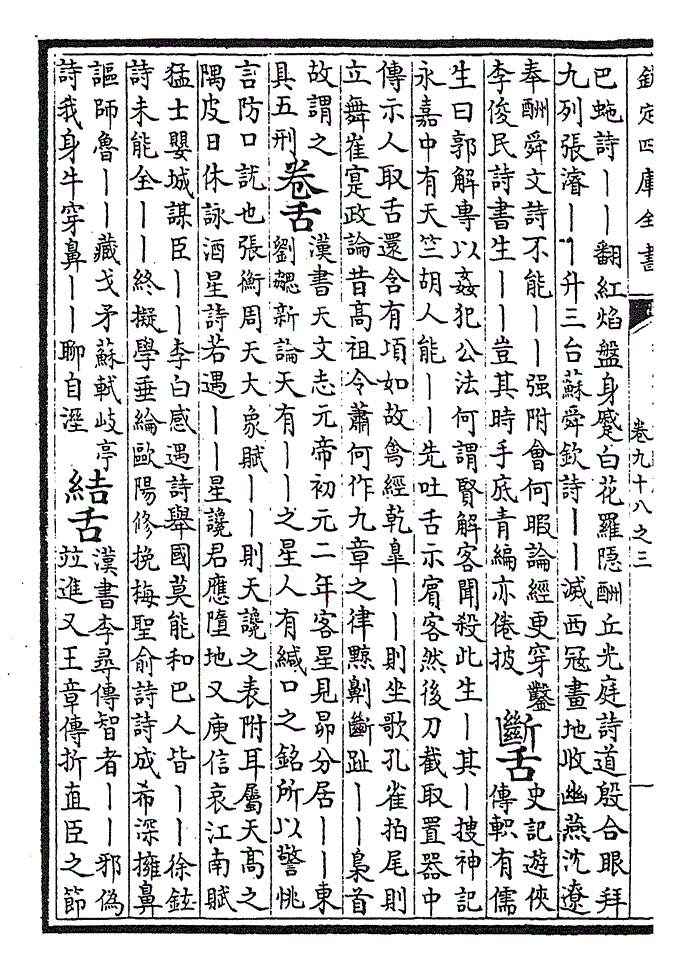 欽定四庫全書
卷九十八之三
巴蛇詩丨丨翻紅焰盤身蹙白花羅隱酬丘光庭詩道殷合眼拜
九列張濬丨丨升三台蘇舜欽詩丨丨滅西冠畫地收幽燕沈遼
奉酬舜文詩不能丨丨强附會何暇論經更穿鑿
李俊民詩書生丨丨豈其時手底青編亦倦披
斷舌
史記遊俠
傳軹有儒
生曰郭解專以姦犯公法何謂賢解客聞殺此生丨其丨搜神記
永嘉中有天竺胡人能丨丨先吐舌示賓客然後刀截取置器中
傳示人取舌還含有項如故禽經乾臯丨丨則坐歌孔雀拍尾則
立舞崔寔政論昔高祖令蕭何作九章之律黥劓斷趾丨丨梟首
故謂之
具五刑
卷舌
漢書天文志元帝初元二年客星見昴分居丨丨東
劉勰新論天有丨丨之星人有緘口之銘所以警恌
言防口訧也張衡周天大象賦丨丨則天讒之表附耳屬天高之
隅皮日休詠酒星詩若遇丨丨星讒君應墮地又庾信哀江南賦
猛士嬰城謀臣丨丨李白感遇詩舉國莫能和巴人皆丨丨徐鉉
詩未能全丨丨終擬學垂綸歐陽修挽梅聖俞詩詩成希深擁鼻
謳師魯丨丨藏戈矛蘇軾岐亭
詩我身牛穿鼻丨丨聊自溼
結舌
漢書李尋傳智者丨丨邪偽
竝進又王章傳折直臣之節